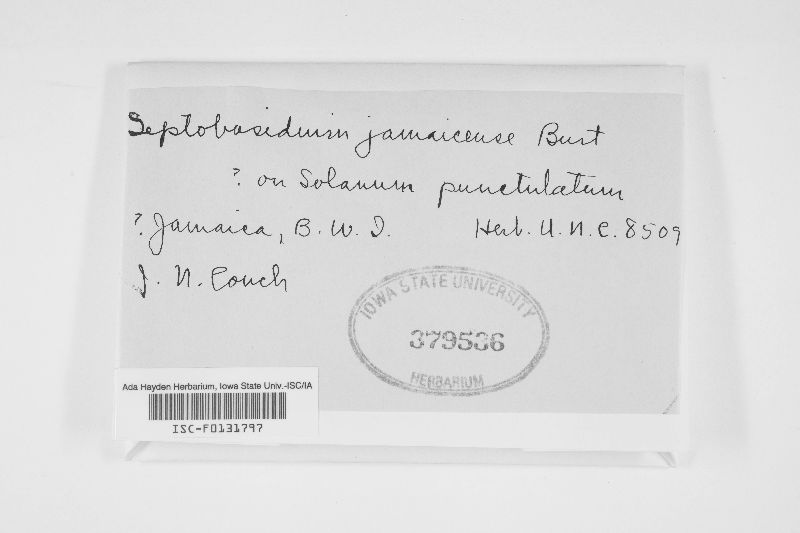 Septobasidium jamaicense Burt
? on Solanum punctulatum
? Jamaica, B. W. I. Herb. U. N. C. 8509
J. N. Couch
IOWA STATE UNIVERSITY
379536
HERBARIUM
Ada Hayden Herbarium, Iowa State Univ.-ISC/IA
ISC-F0131797